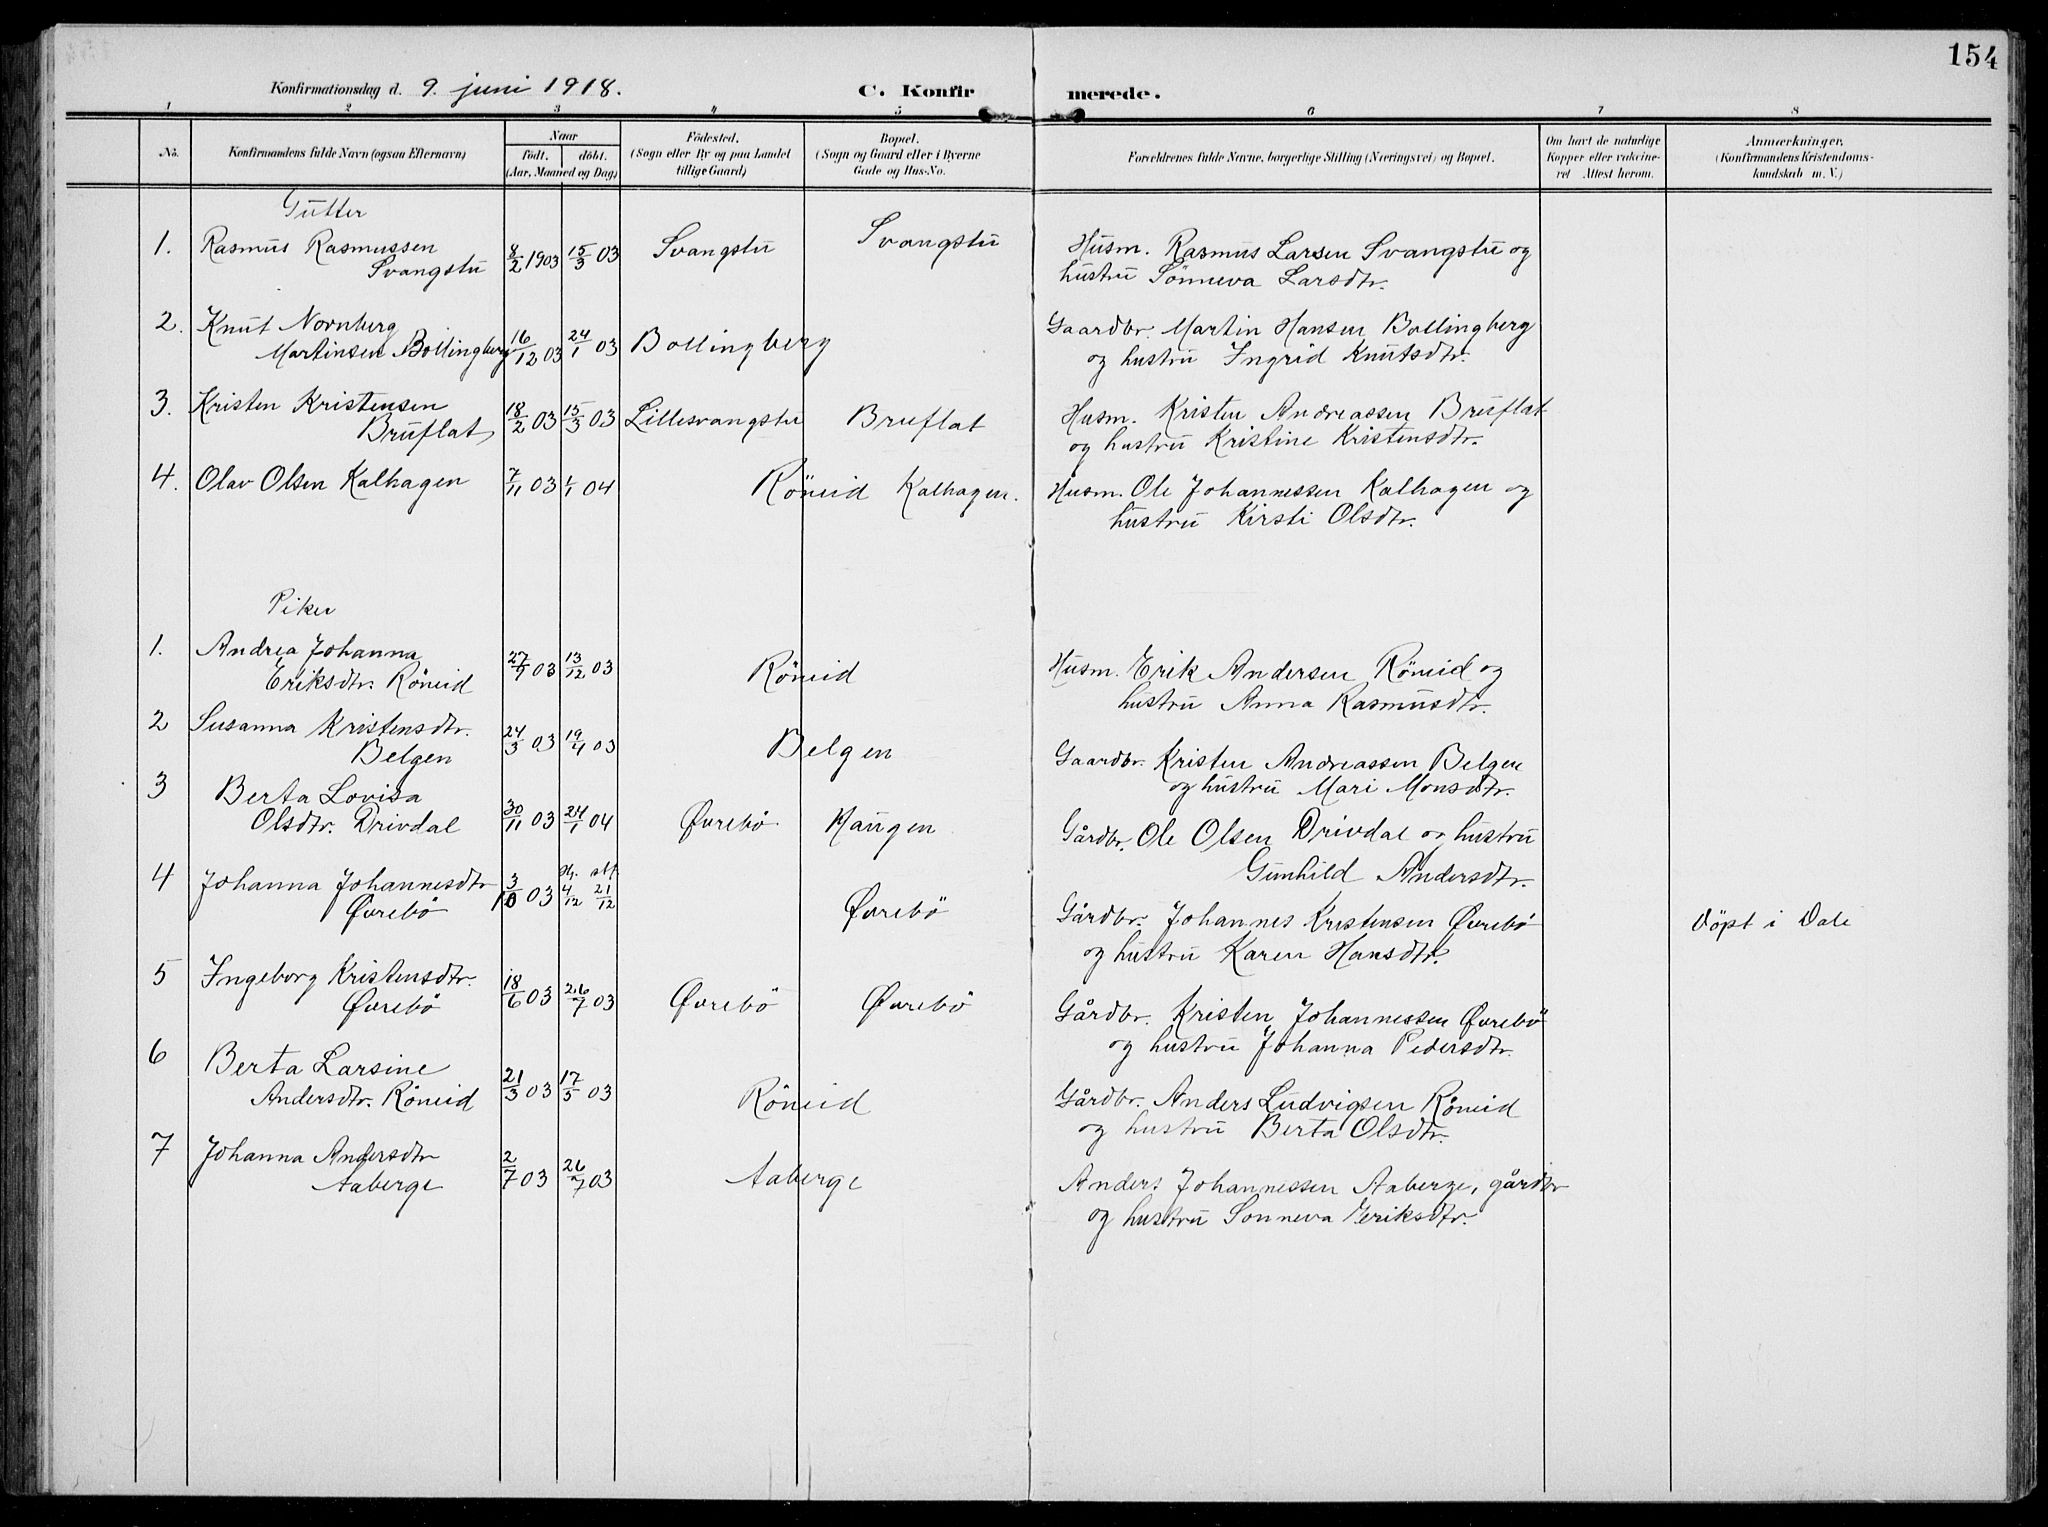 154
Konfirmationsdag d. 9. juni 1918. C. Konfir merede.
1 2 3 4 5 6 7 8
No. Konfirmandens fulde Navn (ogsaa Efternavn) Naar født. døbt. (Aar, Maaned og Dag) Fødested. (Sogn eller By og paa Landet tillige Gaard) Bopæl. (Sogn og Gaard eller i Byerne Gade og Hus-No. Forældrenes fulde Navne, borgerlige Stilling (Næringsvei) og Bopæl. Om havt de naturlige Kopper eller vakcineret Attest herom. Anmærkninger, (Konfirmandens Kristendomskundskab m. V.)
Gutter
1. Rasmus Rasmussen Svangstu 8/2 1903 15/3 03 Svangstu Svangstu Husm. Rasmus Larsen Svangstu og
hustru Sönneva Larsdtr.
2. Knut Nornberg
Martinsen Bollingberg 16/12 03 24/1 03 Bollingberg Gaardbr. Martin Hansen Bollingberg
og hustru Ingrid Knutsdtr.
3. Kristen Kristensen
Bruflat 18/2 03 15/3 03 Lillesvangstu Bruflat Husm. Kristen Andreassen Bruflat
og hustru Kristine Kristensdtr.
4. Olav Olsen Kalhagen 7/11 03 1/1 04 Röneid Kalhagen. Husm. Ole Johannessen Kalhagen og
hustru Kirsti Olsdtr.
Piker
1. Andrea Johanna
Eriksdtr. Röneid 27/9 03 13/12 03 Röneid Husm. Erik Andersen Röneid og
hustru Anna Rasmusdtr.
2 Susanna Kristensdtr.
Belgen 24/3 03 19/4 03 Belgen Gaardbr. Kristen Andreassen Belgen
og hustru Mari Monsdtr.
3 Berta Lovisa
Olsdtr. Drivdal 30/11 03 24/1 04 Øvrebö Haugen Gårdbr. Ole Olsen Drivdal og hustru
Gunhild Andersdtr.
4 Johanna Johannesdtr
Øvrebö 3/10 03 4/12 21/12 Øvrebö Gårdbr. Johannes Kristensen Øvrebö
og hustru Karen Hansdtr. Döpt i Dale
5 Ingeborg Kristensdtr.
Øvrebö 18/6 03 26/7 03 Øvrebö Øvrebö Gårdbr. Kristen Johannessen Øvrebö
og hustru Johanna Pedersdtr.
6 Berta Larsine
Andersdtr. Röneid 21/3 03 17/5 03 Röneid Gårdbr. Anders Ludvigsen Röneid
og hustru Berta Olsdtr.
7 Johanna Andersdtr
Aaberge 2/7 03 26/7 03 Aaberge Anders Johannessen Aaberge, gårdbr
og hustru Sonneva Jeriksdtr.